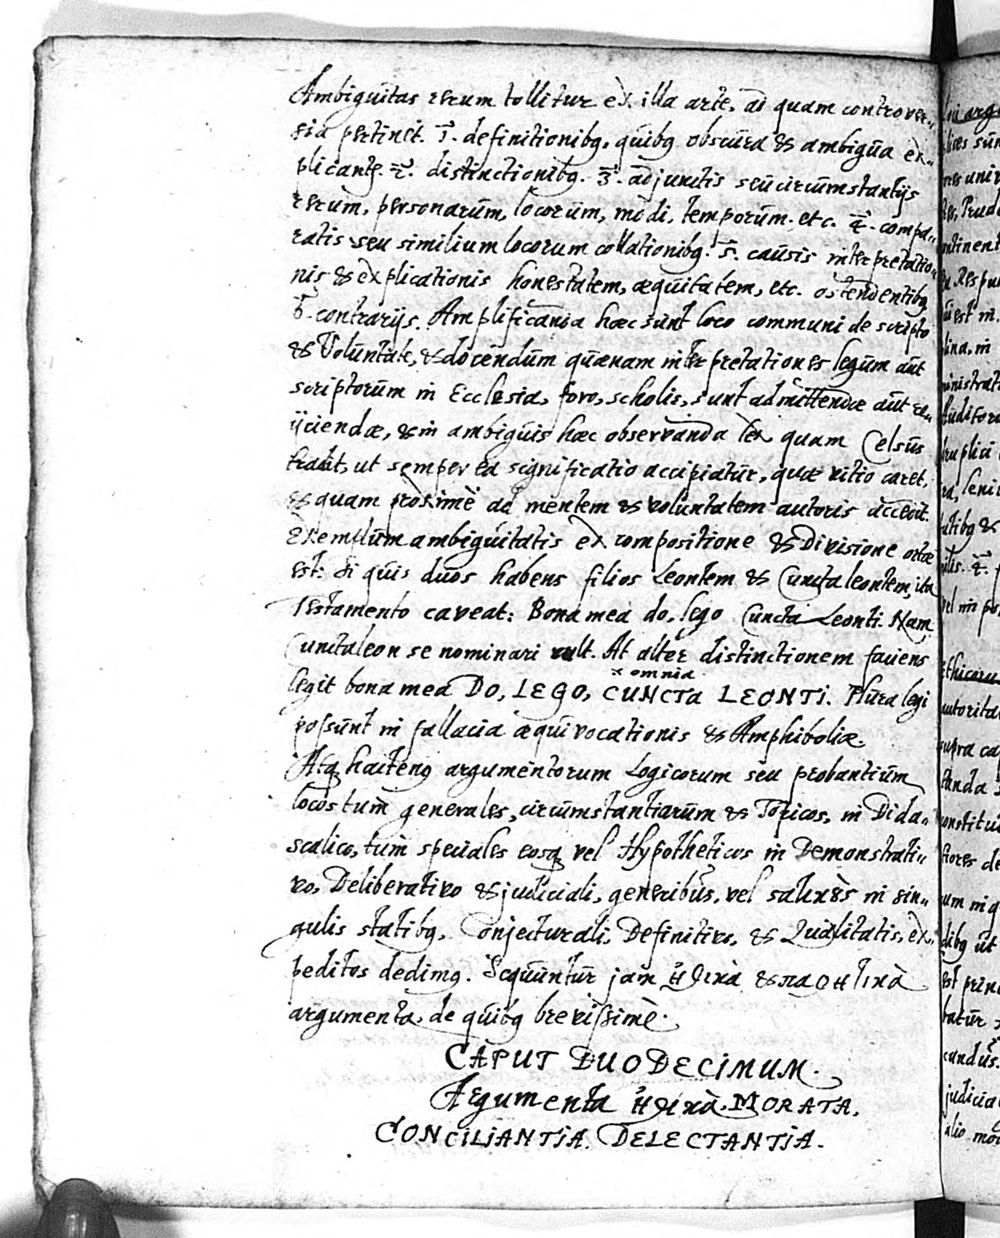 Ambiguitas rerum tollitur ex illa arte, ad quam controver=
sia pertinet. 1. definitionibq, quibq obscura & ambigua ex=
plicantr. 2. distinctionibq. 3. adjunctis seu circumstantijs
rerum, personarum, locorum, modi, temporum, etc. 4. compa=
ratis seu similium locorum collationibq. 5. causis interpretatio=
nis & explicationis honestatem, æquitatem, etc. ostendentibq
6. contrarijs. Amplificanda hæc sunt loco communi de scripto
& Voluntate, & docendum quænam interpretationes legum aut
scriptorum in Ecclesia, foro, scholis, sunt admittendæ aut re=
ijciendæ, & in ambiguis hæc observanda lex quam Celsus
tradit, ut semper ea significatio accipiatur, quæ vitio caret,
& quam proximè ad mentem & voluntatem autoris accedit.
Exemplum ambiguitatis ex compositione & Divisione ortæ
est: Si quis duos habens filios Leontem & Cunctaleontem, ita
Testamento caveat: Bona mea do, lego Cuncta Leonti. Nam
Cunctaleon se nominari vult. At alter distinctionem faciens
x omnia
legit bona mea DO, LEGO, CUNCTA LEONTI. Plura legi
possunt in fallacia æquivocationis & Amphiboliæ.
Atq hactenq argumentorum Logicorum seu probantium
locos tum generales, circumstantiarum & Topicos, in Dida=
scalico, tum speciales eosq vel Hypotheticos in Demonstrati=
vo, Deliberativo & judiciali, generibus, vel in sin=
gulis statibq, Conjecturali, Definitivo, & Qualitatis, ex=
peditos dedimq. Sequuntur jam ἠθικὰ & παθητικὰ
argumenta, de quibq brevissimè.
CAPUT DUODECIMUM.
Argumenta ἠθικὰ. MORATA.
CONCILIANTIA. DELECTANTIA.